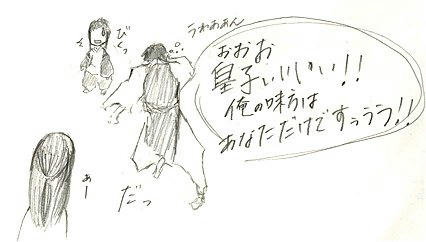 びくっ
うわああん
おおお
皇子ぃぃぃぃ!!
俺の味方は
あなただけですっうう!!
あー
だっ